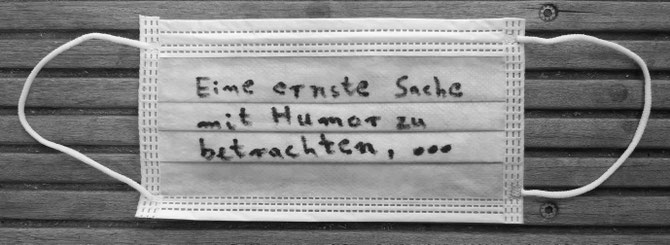 Eine ernste Sache
mit Humor zu
betrachten, ...